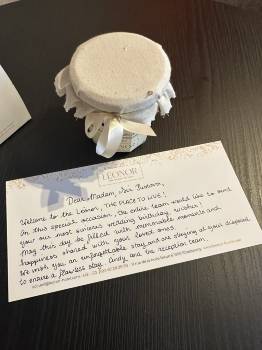 LÉONOR
Dear Madam, Sir
Welcome to the Léonor, THE PLACE TO LIVE!
On this special occasion, the entire team would like to send
your our most sincere wedding birthday wishes!
May this day be filled with memorable moments and
happiness shared with your loved ones.
We wish you an unforgettable stay and are staying at your disposal
to ensure a flawless stay. Cindy and the reception team.